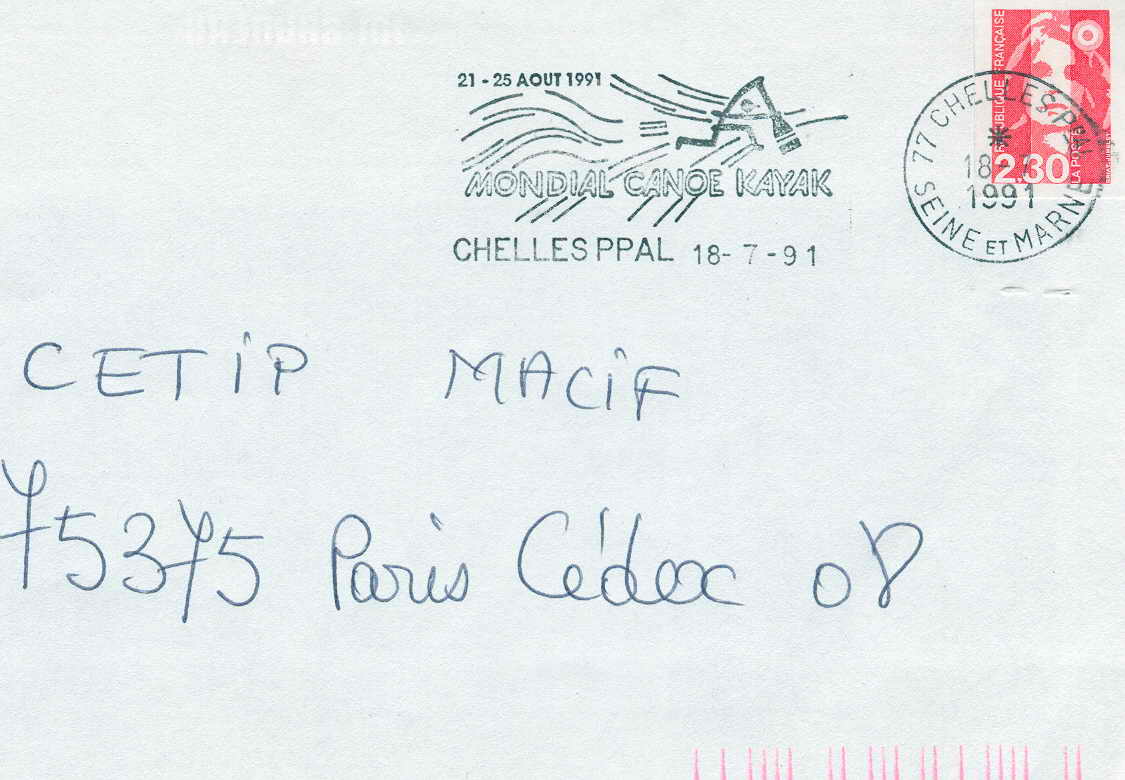 21 - 25 AOUT 1991
MONDIAL CANOE KAYAK
CHELLES PPAL 18- 7 -91
RÉPUBLIQUE FRANÇAISE
2,30
LA POSTE
77 CHELLES PPAL
*
18-7
1991
SEINE ET MARNE
CETIP MACIF
75375 Paris Cédex 08